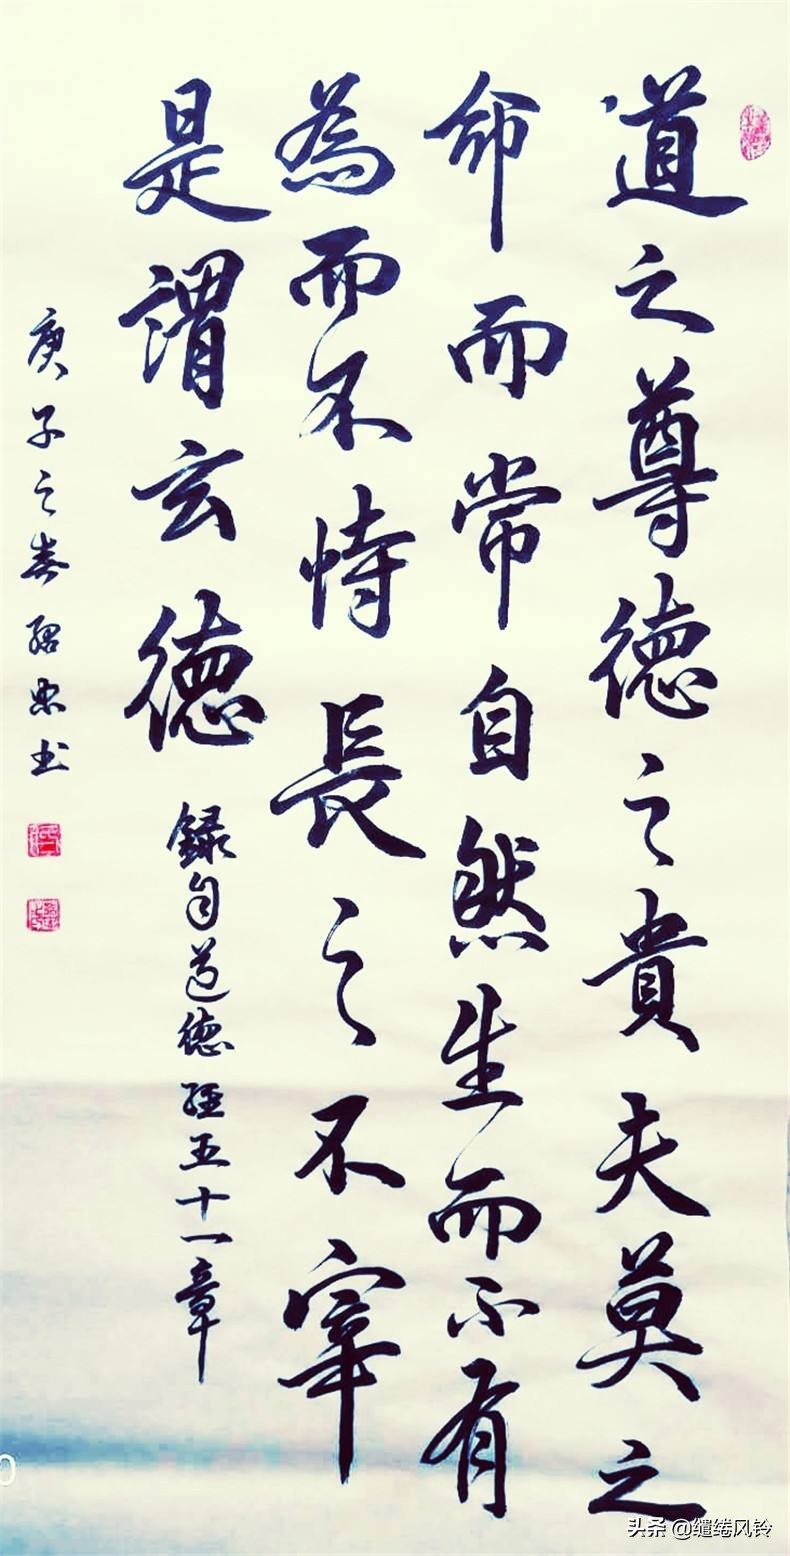 道之尊德之貴夫莫之
命而常自然生而不有
為而不恃長之不宰
是謂玄德
錄自道德經五十一章
庚子之春紹忠书
头条 @缱绻风铃